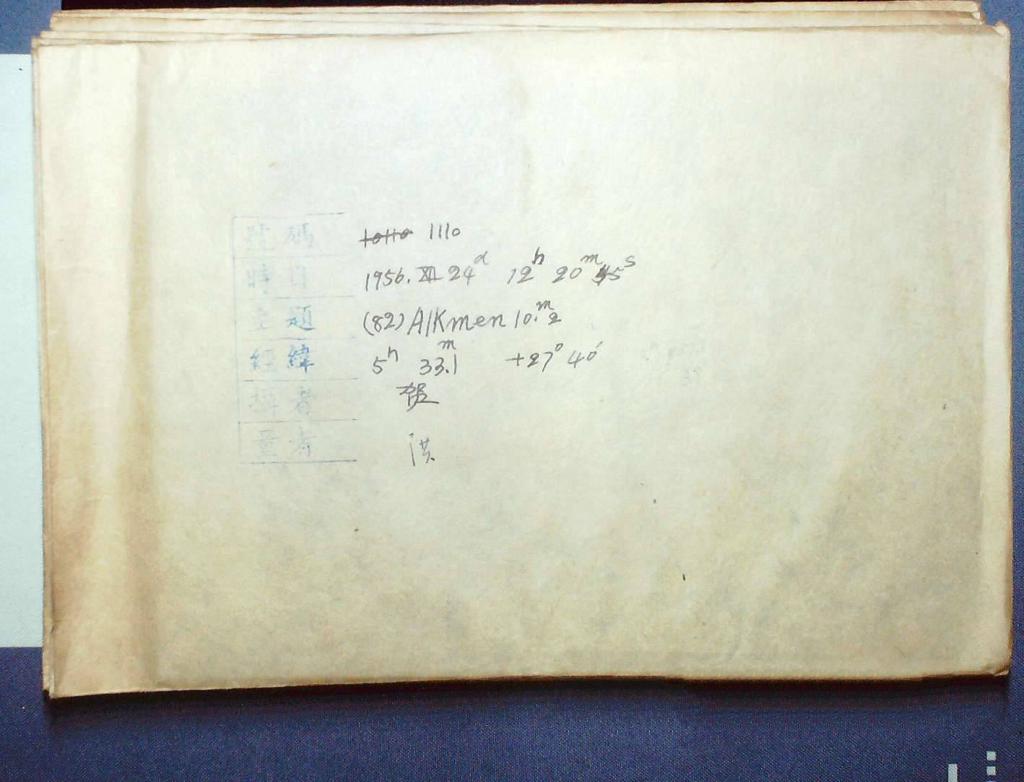 號碼 1110
時日 1956. XII 24d 12h 20m 45s
主題 (82) Alkmen 10.m2
經緯 5h 33.m1 +27° 40'
攝者 张
量者 洪